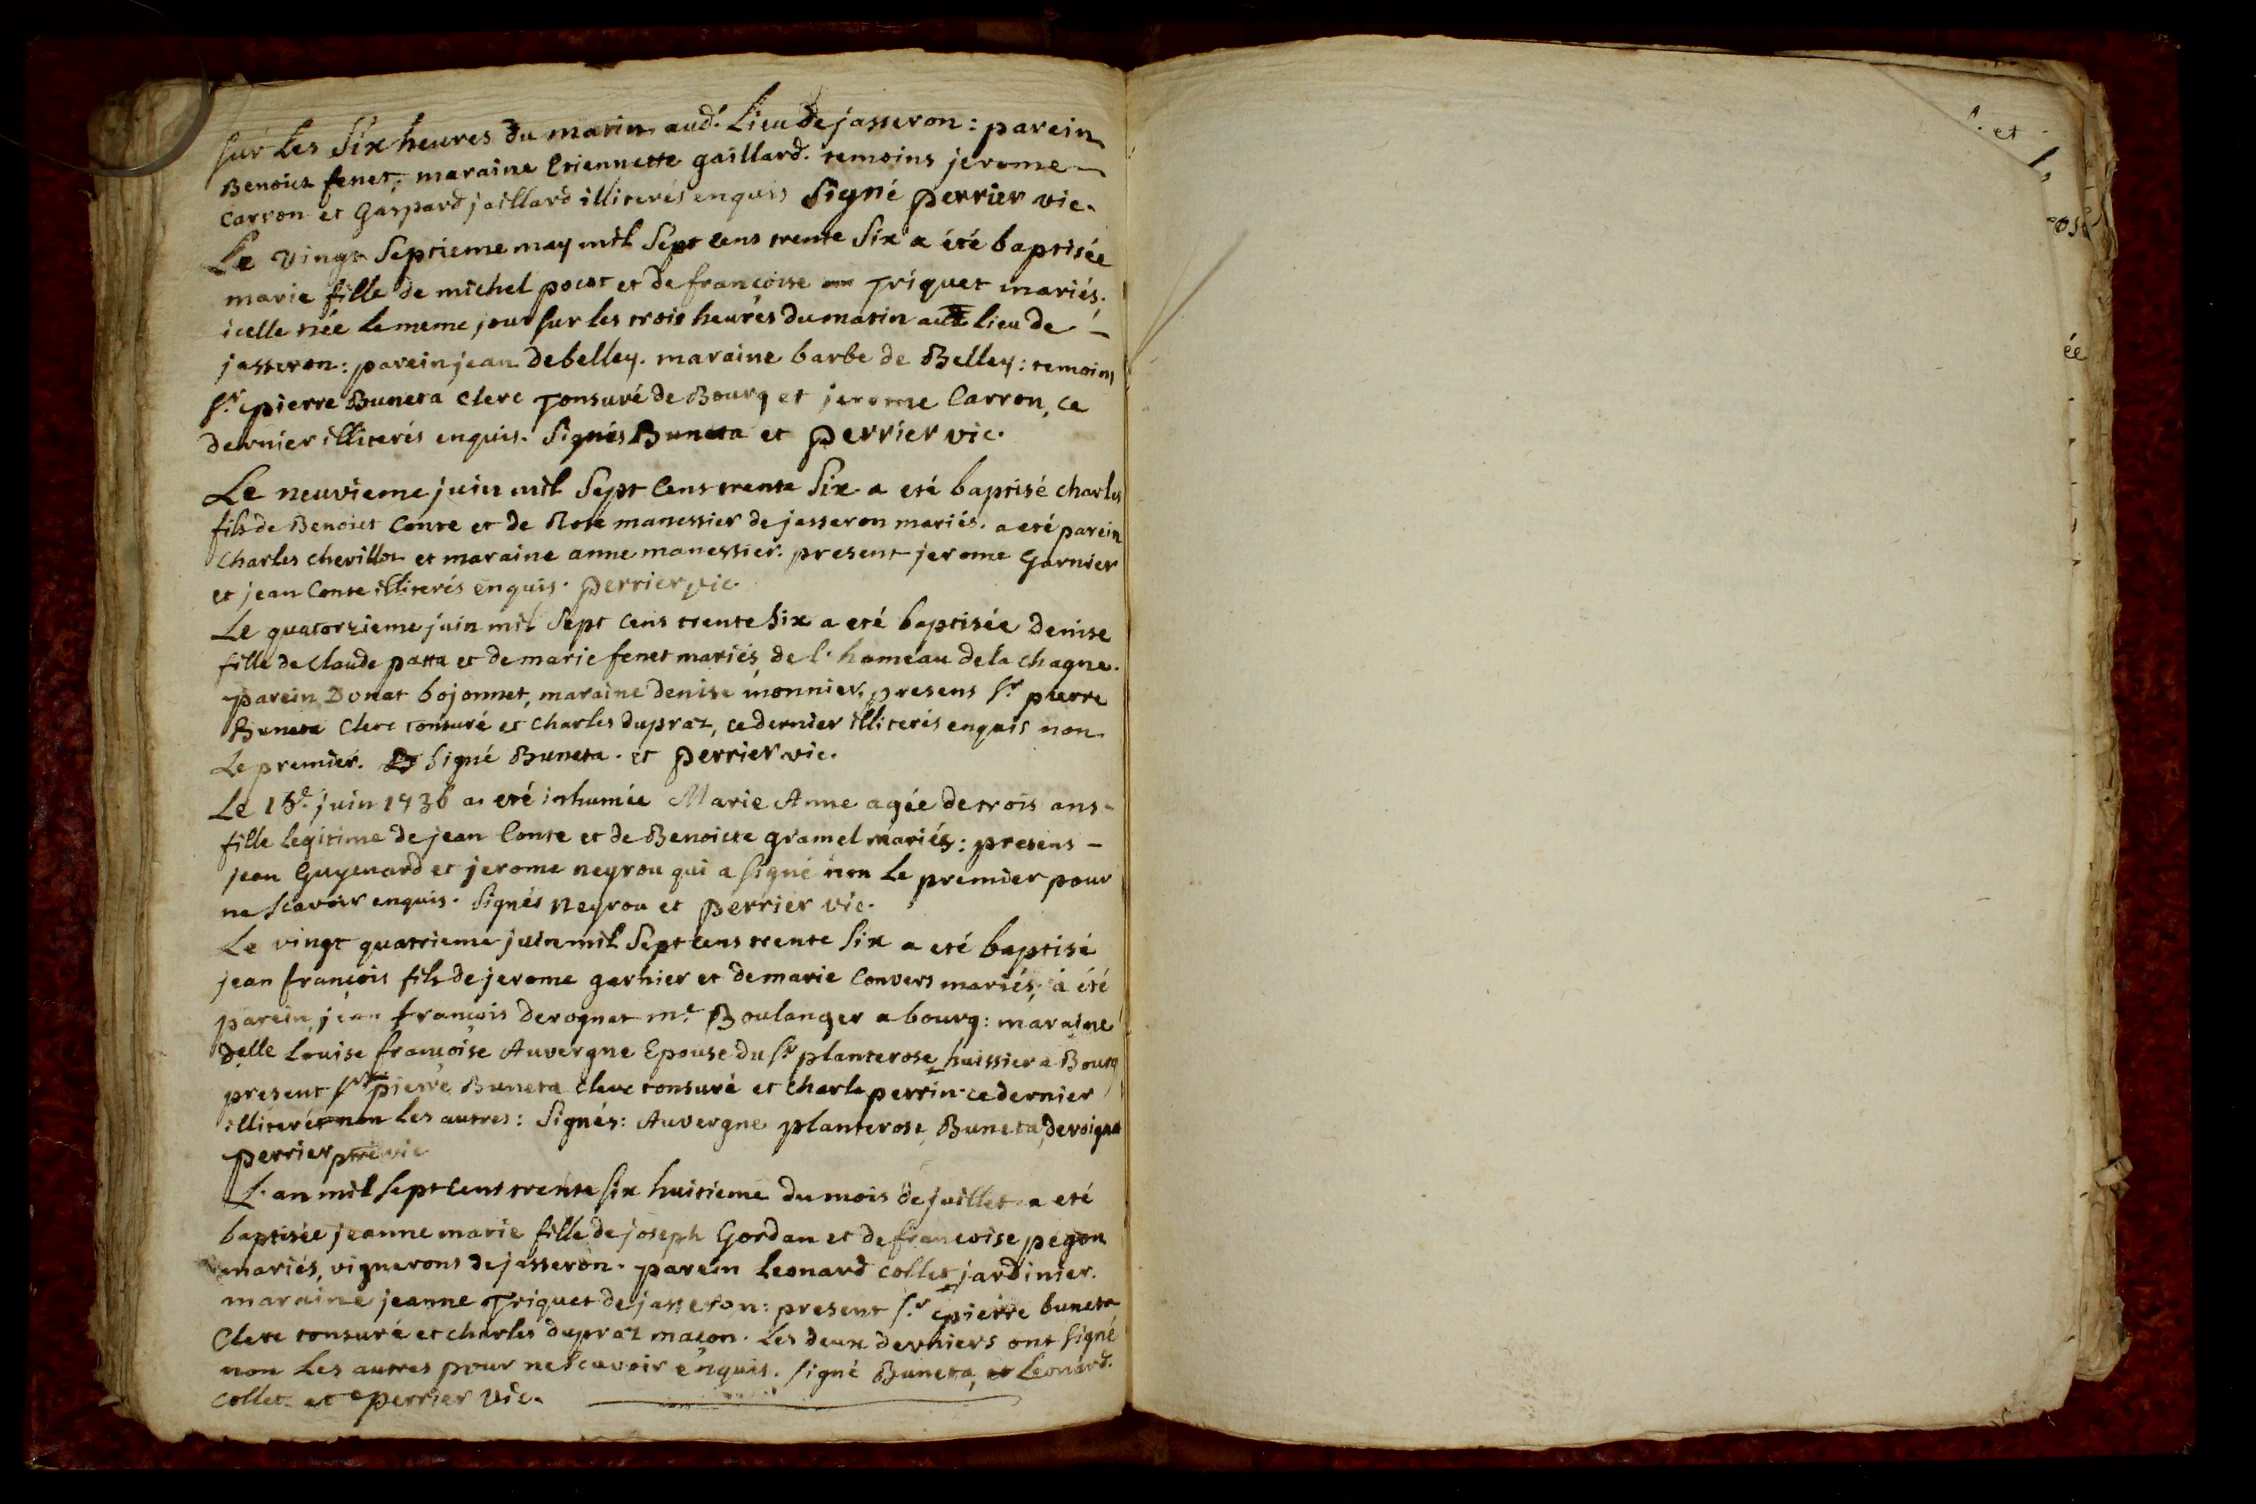 sur les Six heures du matin aud.t Lieu de jasseron : parein
Benoist fenet, maraine Etiennette gaillard. temoins jerome
Carron et Gaspard jaillard illiterés enquis Signé perrier vic.
Le vingt Septieme may mil Sept Cens trente Six a été baptisée
marie fille de michel pocat et de françoise Triquet mariés.
icelle née le meme jour sur les trois heures du matin aud Lieu de
jasseron : parein jean debelley. maraine barbe de Belley : temoins
sr. pierre Buneta Clerc Tonsuré de Bourg et jerome Carron, ce
dernier illiterés enquis. Signés Buneta et perrier vic.
Le neuvieme juin mil Sept Cens trente Six a eté baptisé charles
fils de Benoist Conte et de Rose manessier de jasseron mariés. a eté parein
Charles chevillot et maraine anne manessier. present jerome Garnier
et jean Conte illiterés enquis. perrier vic.
Le quatorzieme juin mil Sept Cens trente Six a eté baptisée denise
fille de Claude patta et de marie fenet mariés de l. hameau de la chagne.
parein Donat bojonnet, maraine denise monnier, presens sr. pierre
Buneta Clerc tonsuré et Charles dupraz, ce dernier illiterés enquis non
Le premier. Signé Buneta. et perrier vic.
Le 18e. juin 1736 a eté inhumée Marie Anne agée de trois ans
fille legitime de jean Conte et de Benoiste gramel mariés : presens
jean Guyenard et jerome neyrou qui a signé non le premier pour
ne scavoir enquis. Signés neyrou et perrier vic.
Le vingt quatrieme juin mil Sept Cens trente Six a eté baptisé
jean françois fils de jerome garnier et de marie Convers mariés, a été
parein jean françois derognat me. Boulanger a bourg : maraine
Delle Louise françoise Auvergne Epouse du sr. planterose huissier a Bourg
present sr. pierre Buneta clerc tonsuré et Charle perrin ce dernier
illiterés non les autres : Signés : Auvergne planterose, Buneta,
perrier ptre vic
L'an mil sept Cens trente six huitieme du mois de juillet a eté
baptisée jeanne marie fille de joseph Gordan et de francoise pegon
mariés, vignerons de jasseron. parein Leonard Collet jardinier.
maraine jeanne Triquet de jasseron : present sr. pierre buneta
Clerc tonsuré et charles dupraz maçon. Les deux derniers ont signé
non Les autres pour ne scavoir enquis. signé Buneta, et Leonard.
Collet. et perrier vic.
. et
ose
ée